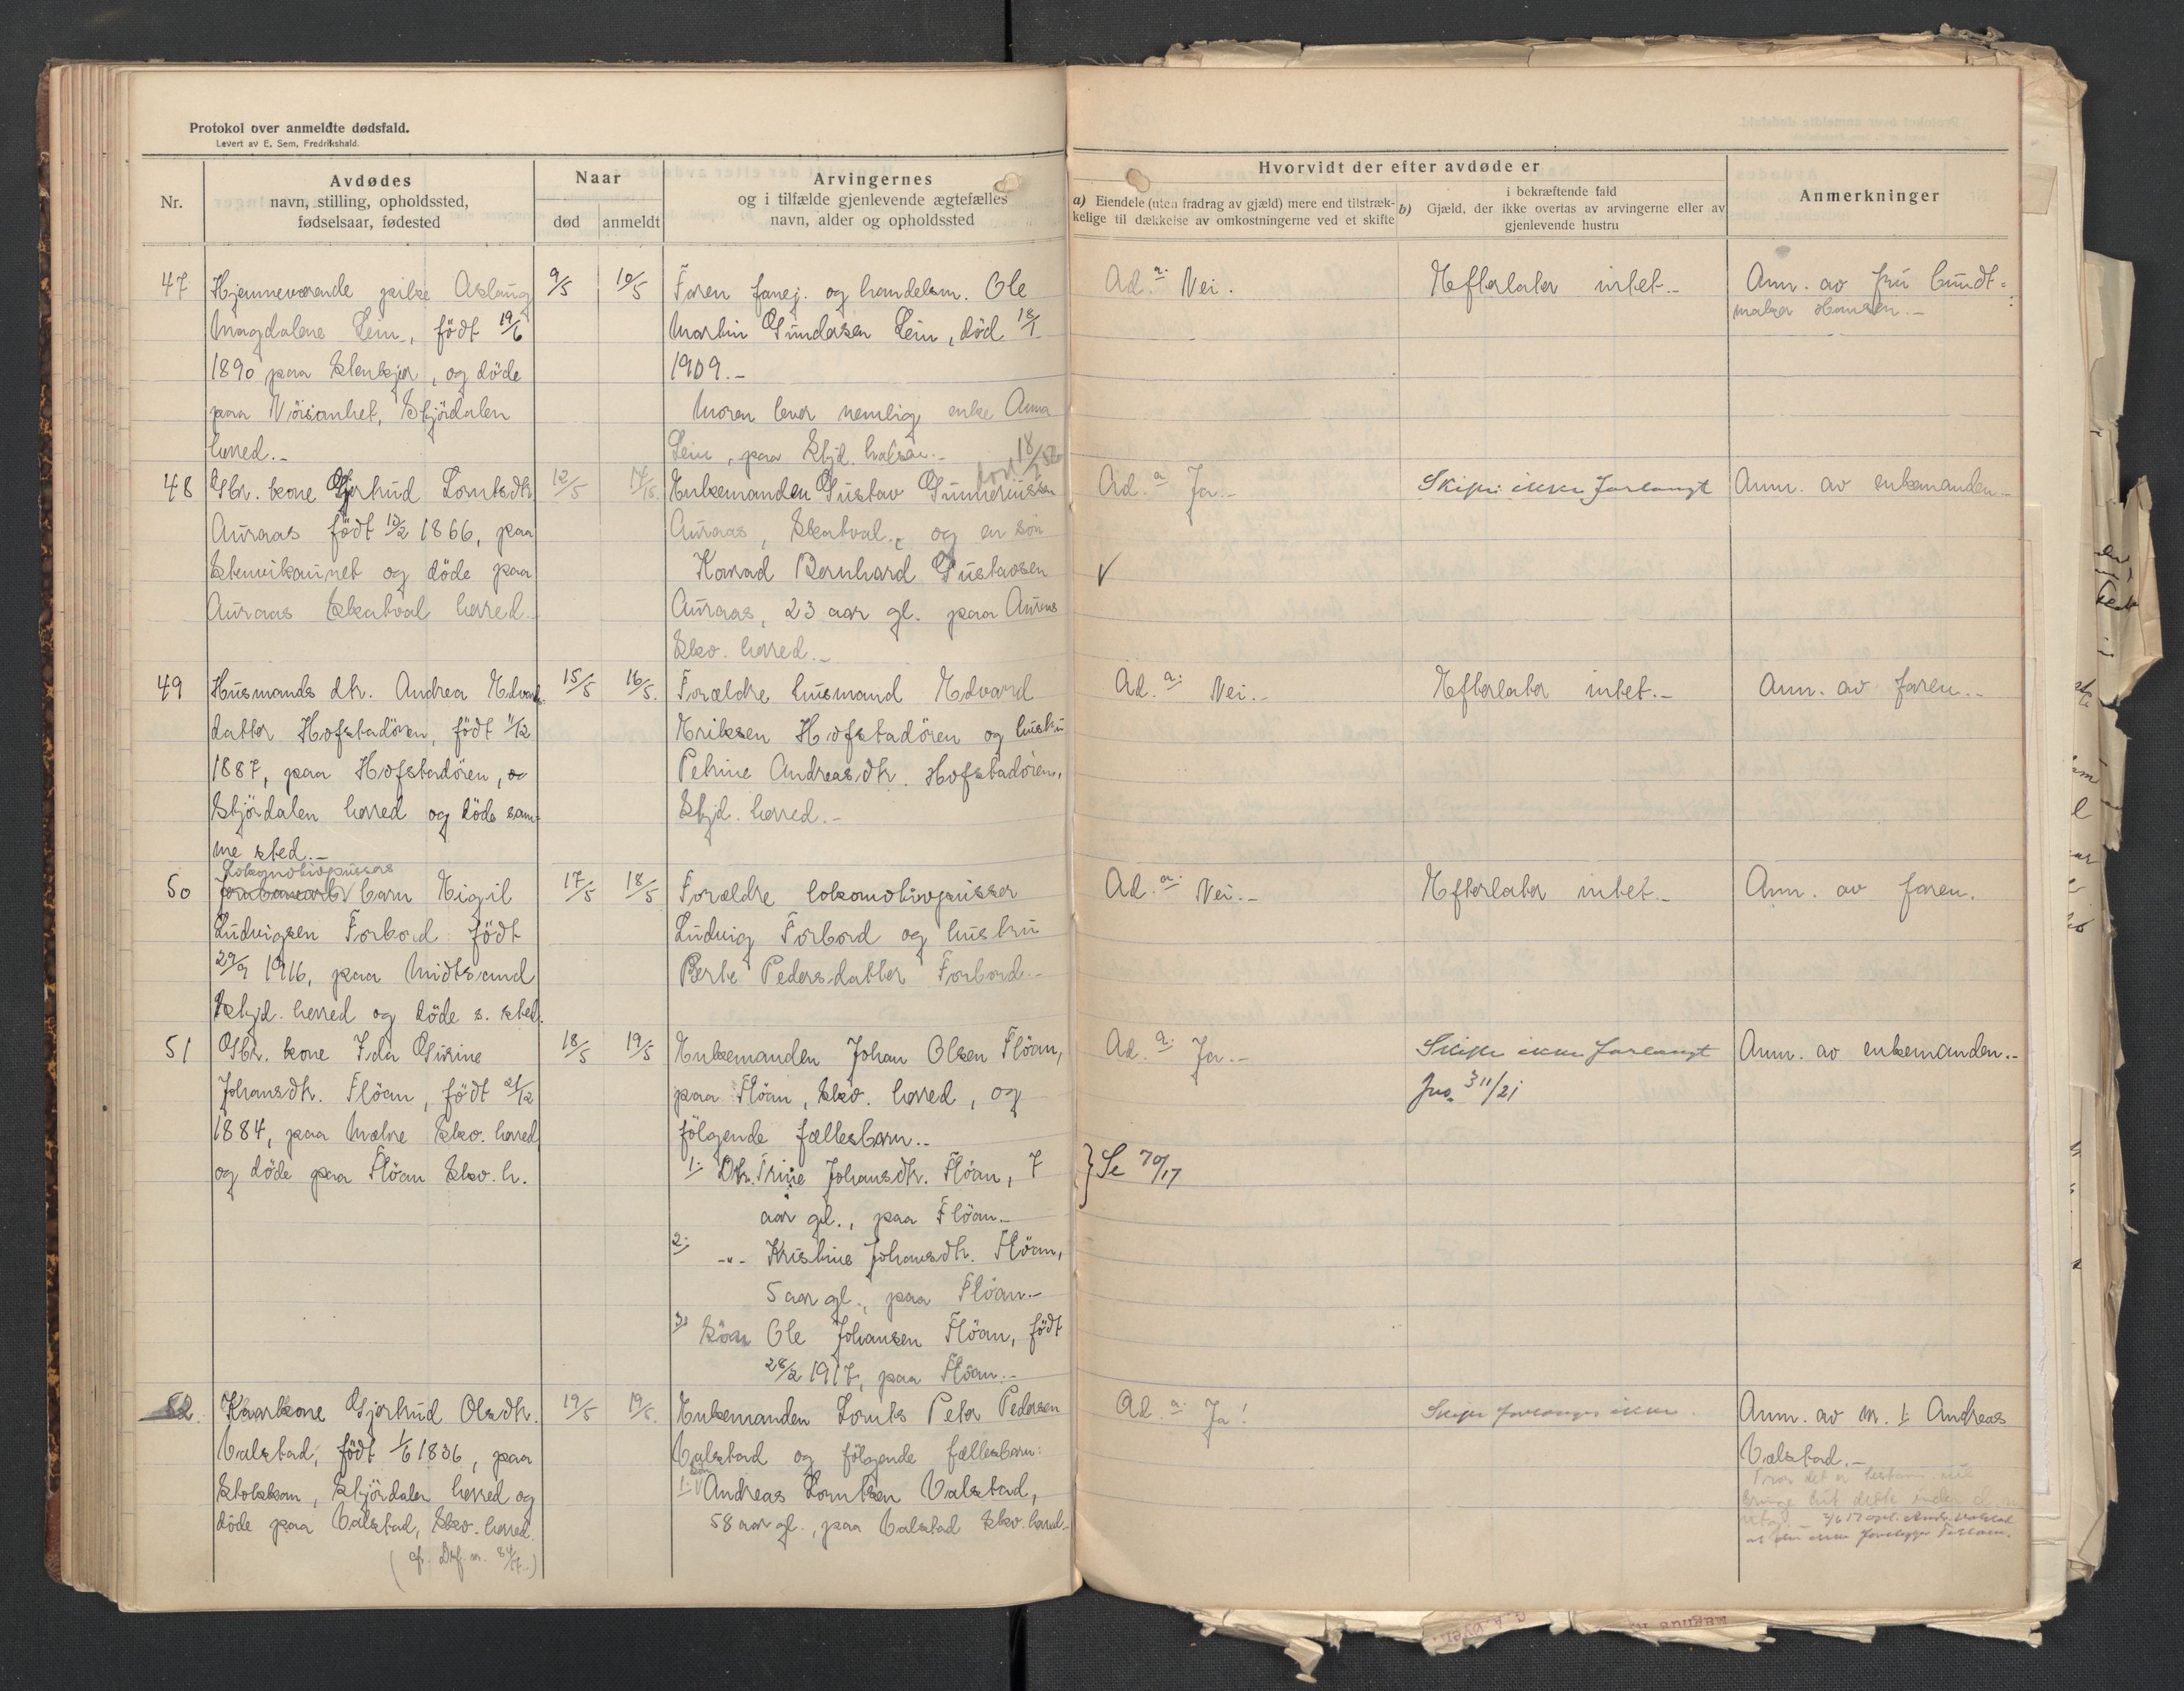 Protokol over anmeldte dødsfald.
Levert av E. Sem, Fredrikshald.
Nr.
Avdødes
navn, stilling, opholdssted,
fødselsaar, fødested
Naar
død
anmeldt
Arvingernes
og i tilfælde gjenlevende ægtefælles
navn, alder og opholdssted
Hvorvidt der efter avdøde er
a) Eiendele (uten fradrag av gjæld) mere end tilstræk-
kelige til dækkelse av omkostningerne ved et skifte
i bekræftende fald
b) Gjæld, der ikke overtas av arvingerne eller av
gjenlevende hustru
Anmerkninger
47
Hjemmeværende pike Aslaug
Magdalene Lein, födt 19/6
1890 paa Stenkjer, og döde
paa Nöisomhet, Stjördalen
herred.-
9/5
10/5
Faren fanej. og handelsm. Ole
Martin Gundersen Lein, död 18/1
1909.-
Moren lever nemlig enke Anna
Lein, paa Stjd. halsen.-
Ad. a: Nei.
Efterlater intet.-
Anm. av fru bundt-
maker Hansen.-
48
Gbr. kone Gjertrud Lorntsdtr
Auraas födt 13/2 1866, paa
Stenvikaunet og döde paa
Auraas Skatval herred.
12/5
14/5.
18/
Enkemanden Gustav Gunneriussen
Auraas, Skatval, og en sön
Konrad Bernhard Gustavsen
Auraas, 23 aar gl. paa Auraas
Skv. herred.-
Ad. a Ja.-
V
Skifte ikke forlangt
Anm. av enkemanden.-
49
Husmands dtr. Andrea Edvards
datter Hofstadören, födt 11/12
1887, paa Hofstadören, o
Stjördalen herred og döde sam-
me sted.-
15/5
16/5.
Forældre husmand Edvard
Eriksen Hofstadören og hustru
Petrine Andreasdtr. Hofstadören,
Stjd. herred.-
Ad. a: Nei.-
Efterlater intet.-
Anm. av faren.-
50
Lokomotivpussers
barn Eigil
Ludvigsen Forbord födt
29/9 1916, paa Midtsand
Stjd. herred og döde s. sted.
17/5
18/5
Forældre lokomotivpusser
Ludvig Forbord og hustru
Berte Pedersdatter Forbord.-
Ad. a: Nei.-
Efterlater intet.-
Anm. av faren.
51
Gbr. kone Ida Girine
Johansdtr. Flöan, födt 21/12
1884, paa Mælne Skv. herred
og döde paa Flöan Skv. h.
18/5
19/5
Enkemanden Johan Olsen Flöan,
paa Flöan, Skv. herred, og
fölgende fællesbarn.-
1: Dtr. Trine Johansdtr. Flöan, 7
aar gl., paa Flöan.-
2: -"- Kristine Johansdtr. Flöan,
5 aar gl., paa Flöan.-
3: Sön Ole Johansen Flöan, födt
28/2 1917, paa Flöan.-
Ad. a: Ja.-
} Se 70/17
Skifte ikke forlangt
311/21
Anm. av enkemanden.-
52.
Kaarkone Gjertrud Olsdtr.
Valstad, födt 1/6 1836, paa
Stokkan, Stjördalen herred og
döde paa Valstad, Skv. herred.
(cfr. Drf. nr. 84/17.)
19/5
19/5.
Enkemanden Lornts Peter Pedersen
Valstad og fölgende fællesbarn:
sön
1: V Andreas Lorntsen Valstad,
58 aar gl., paa Valstad Skv. herred.-
Ad. a: Ja!
Skifte forlanges ikke.
Anm. av nr. 1: Andreas
Valstad.-
Tror det er